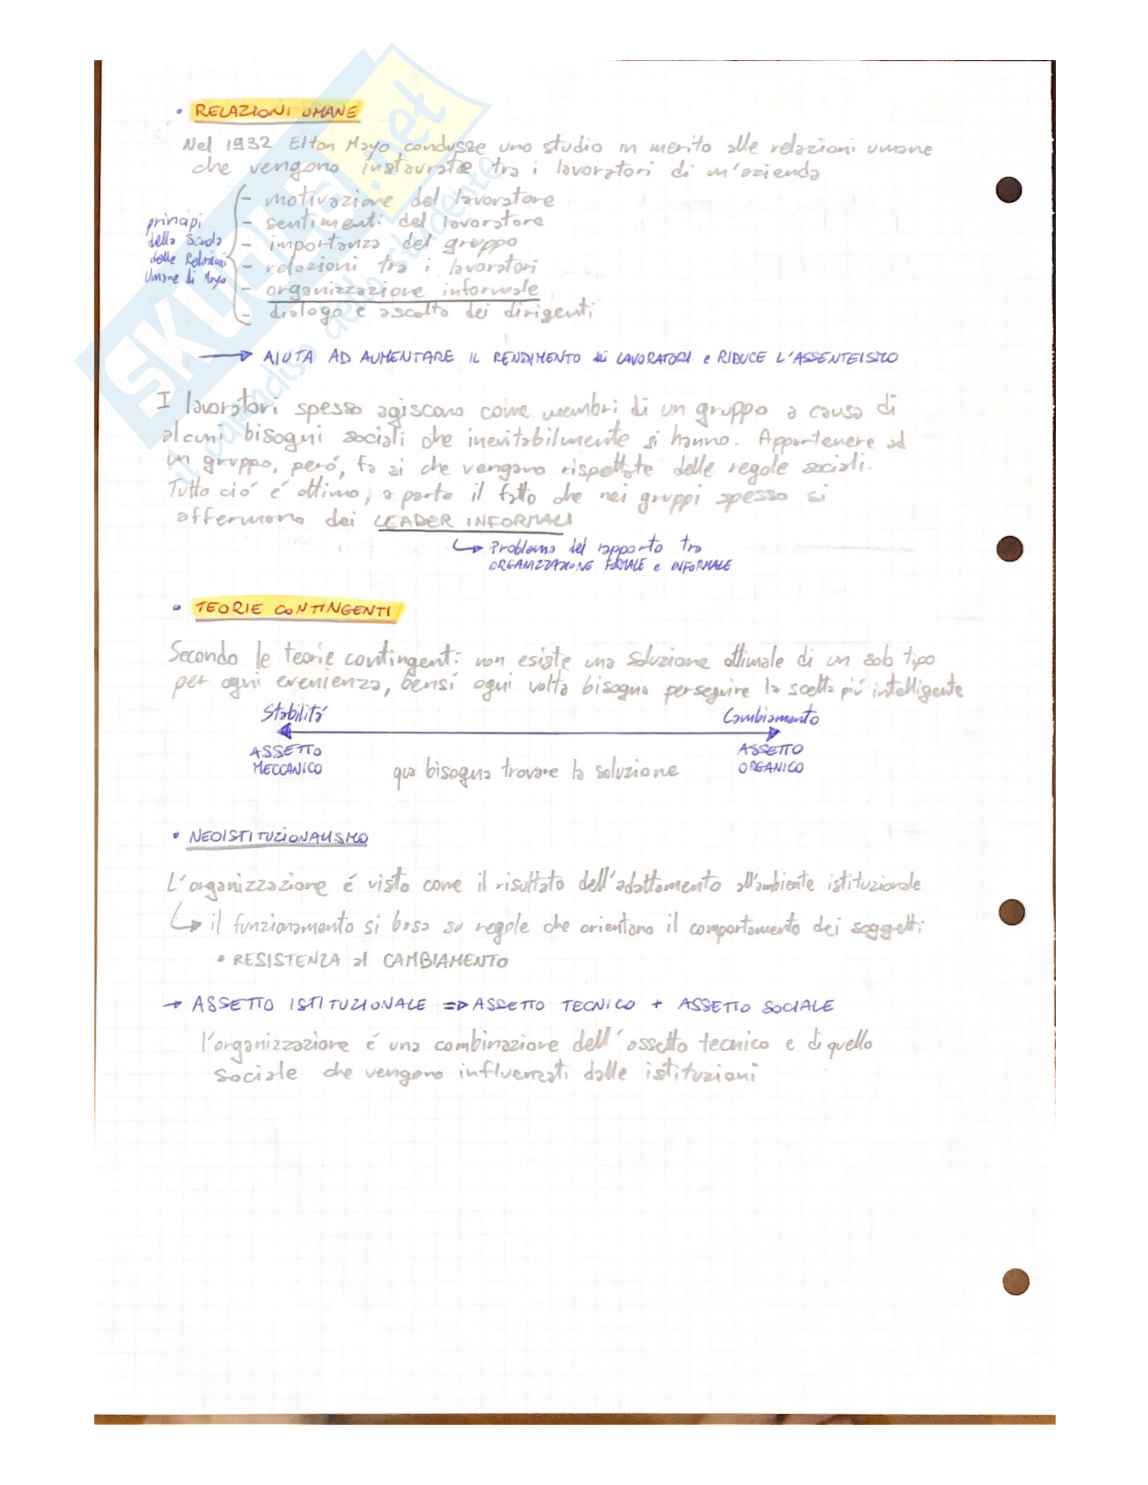 • RELAZIONI UMANE
Nel 1932 Elton Mayo condusse uno studio in merito alle relazioni umane
che vengono instaurate tra i lavoratori di un'azienda
principi della Scuola delle Relazioni Umane di Mayo
- motivazione del lavoratore
- sentimenti del lavoratore
- importanza del gruppo
- relazioni tra i lavoratori
- organizzazione informale
- dialogo e ascolto dei dirigenti
→ AIUTA AD AUMENTARE IL RENDIMENTO dei LAVORATORI e RIDUCE L'ASSENTEISMO
I lavoratori spesso agiscono come membri di un gruppo a causa di
alcuni bisogni sociali che inevitabilmente si hanno. Appartenere ad
un gruppo, però, fa sì che vengano rispettate delle regole sociali.
Tutto ciò è ottimo, a parte il fatto che nei gruppi spesso si
affermano dei LEADER INFORMALI
↳ Problema del rapporto tra
ORGANIZZAZIONE FORMALE e INFORMALE
• TEORIE CONTINGENTI
Secondo le teorie contingenti non esiste una soluzione ottimale di un solo tipo
per ogni evenienza, bensì ogni volta bisogna perseguire la scelta più intelligente
Stabilità Cambiamento
ASSETTO MECCANICO ASSETTO ORGANICO
qua bisogna trovare la soluzione
• NEOISTITUZIONALISMO
L'organizzazione è vista come il risultato dell'adattamento all'ambiente istituzionale
↳ il funzionamento si basa su regole che orientano il comportamento dei soggetti
• RESISTENZA al CAMBIAMENTO
→ ASSETTO ISTITUZIONALE => ASSETTO TECNICO + ASSETTO SOCIALE
l'organizzazione è una combinazione dell'assetto tecnico e di quello
sociale che vengono influenzati dalle istituzioni
SKUOLA.net